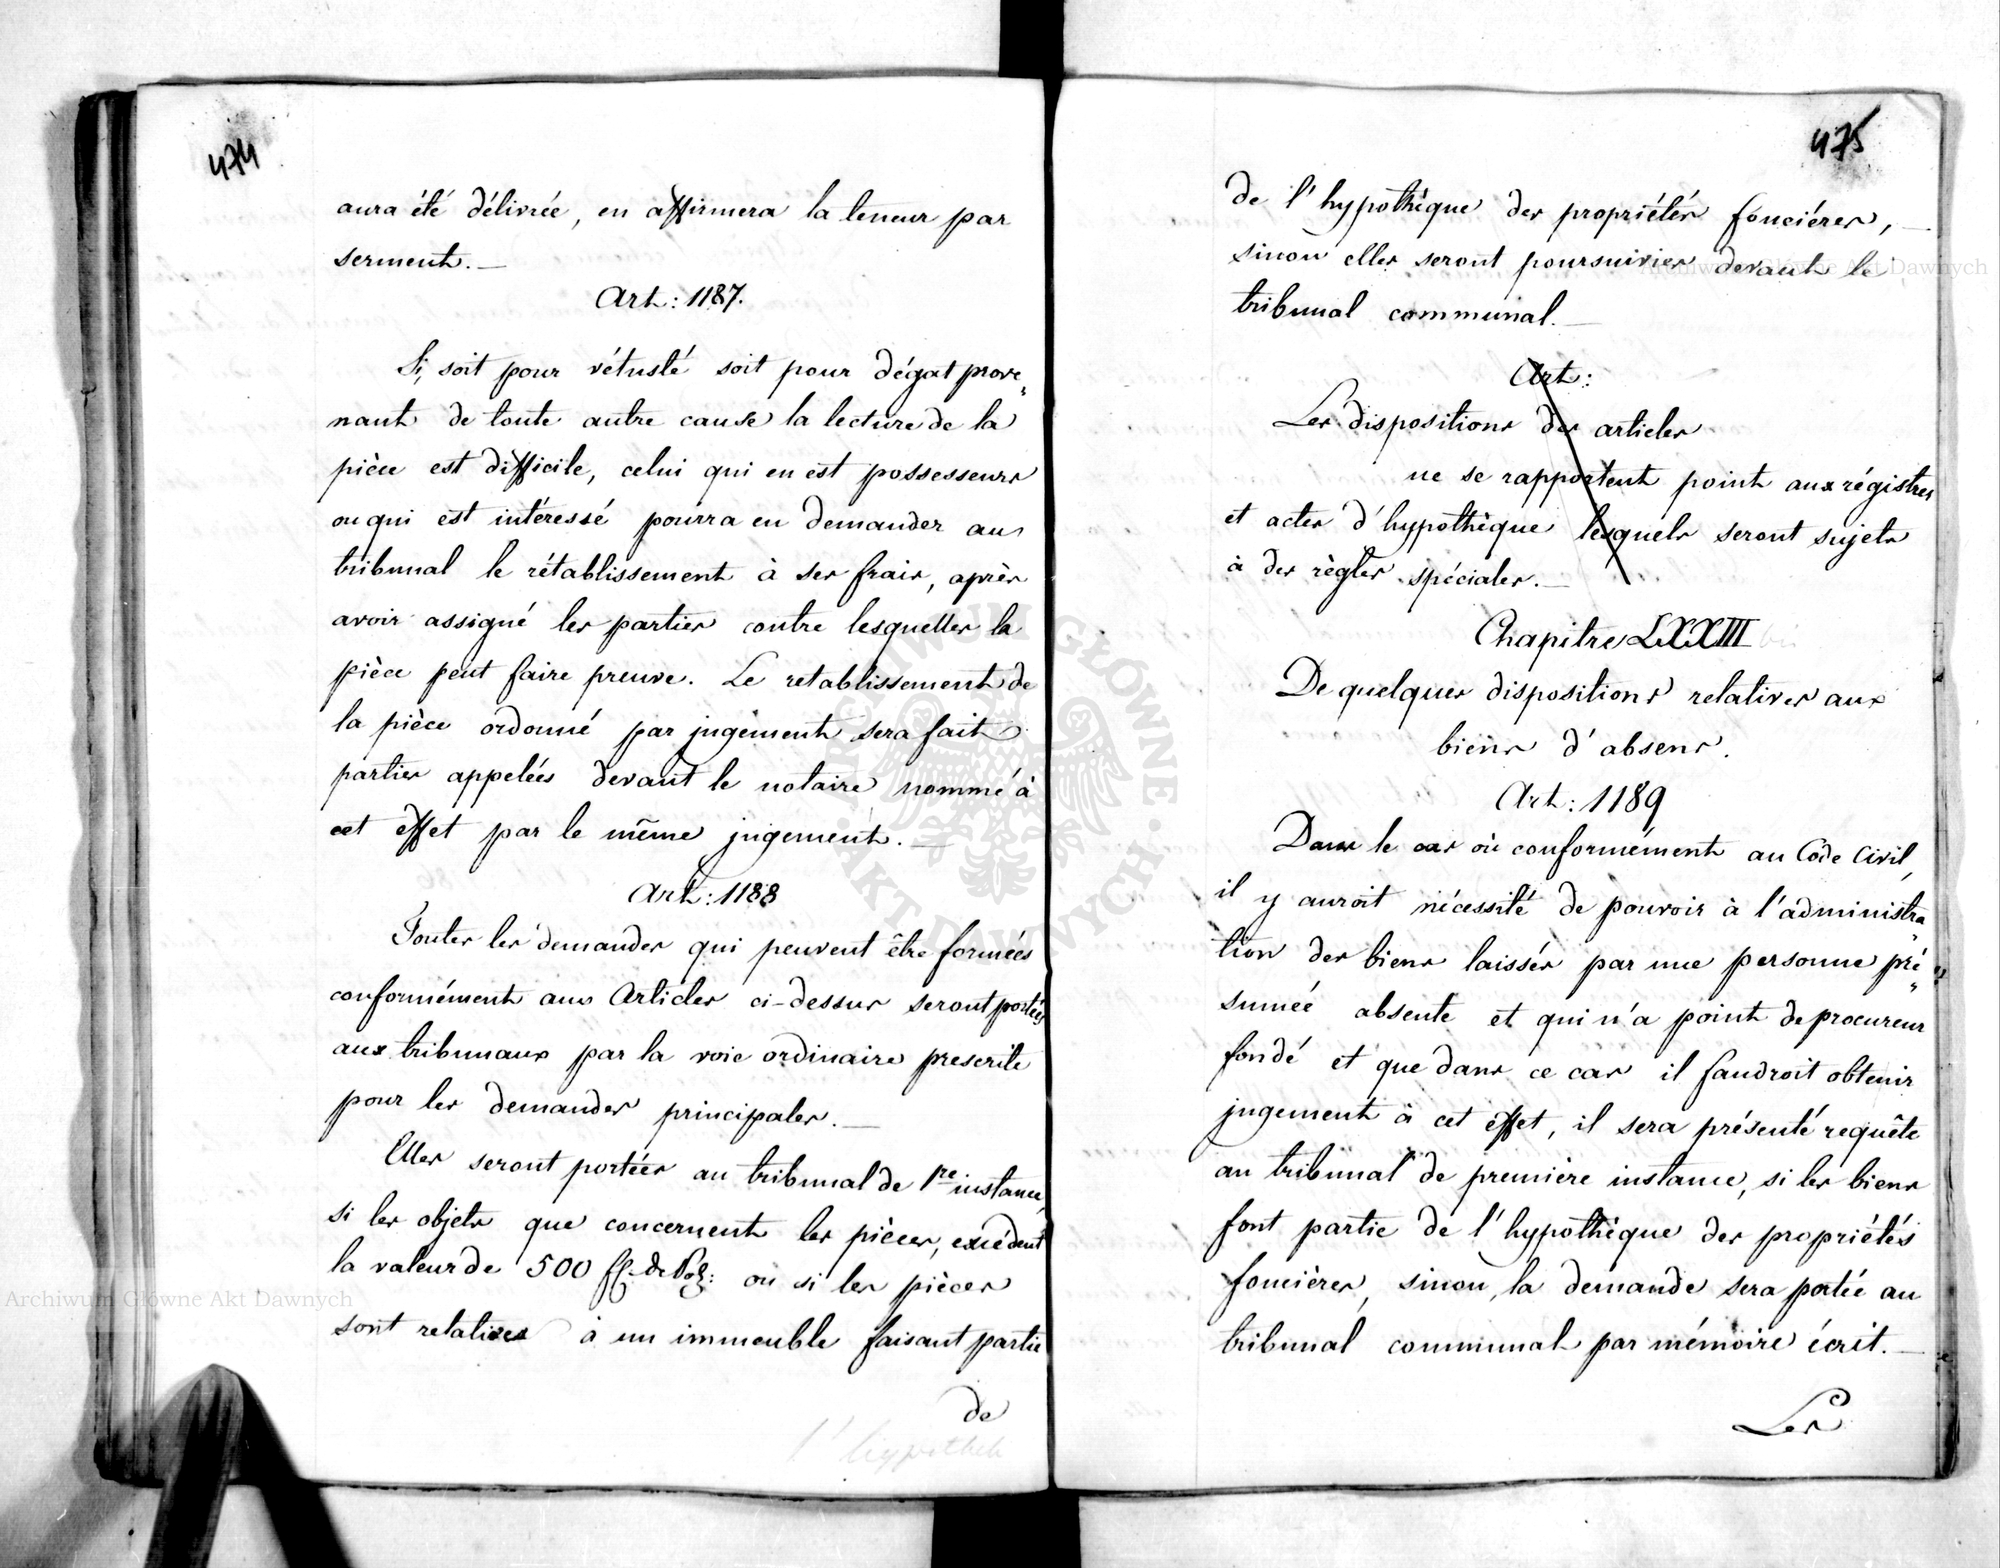 474
aura été délivrée, en affirmera la teneur par
serment. —
Art: 1187.
Si, soit pour vétusté soit pour dégat prove„
nant de toute autre cause la lecture de la
pièce est difficile, celui qui en est possesseurs
ou qui est intéressé pourra en demander au
tribunal le rétablissement à ses frais, après
avoir assigné les parties contre lesquelles la
pièce peut faire preuve. Le retablissement de
la pièce ordonné par jugement sera fait
parties appelées devant le notaire nommé à
cet effet par le même jugement. —
Art: 1188
Toutes les demandes qui peuvent être formées
conformément aux Articles ci-dessus seront portées
aux tribunaux par la voie ordinaire prescrite
pour les demandes principales. —
Elles seront portées au tribunal de 1re instance,
si les objets que concernent les pièces, excédent
la valeur de 500 fl. de Pol: ou si les pièces
sont relatives à un immeuble faisant partie
de
l'hypothek
475
de l'hypothèque des propriétés foncières, —
sinon elles seront poursuivies devant le
tribunal communal. —
Art:
Les dispositions des articles
ne se rapportent point aux régistres
et actes d'hypothèque lesquels seront sujets
à des règles spéciales. —
Chapitre LXXIII
De quelques dispositions relatives aux
biens d'absens.
Art: 1189
Dans le cas où conformément au Code Civil,
il y auroit nécessité de pouvoir à l'administra„
tion des biens laissés par une personne pré„
sumée absente et qui n'a point de procureur
fondé et que dans ce cas il faudroit obtenir
jugement à cet effet, il sera présenté requête
au tribunal de première instance, si les biens
font partie de l'hypothèque des propriétés
foncières, sinon, la demande sera portée au
tribunal communal par mémoire écrit. —
Les
Archiwum Główne Akt Dawnych
Archiwum Główne Akt Dawnych
ARCHIWUM GŁÓWNE · AKT DAWNYCH ·